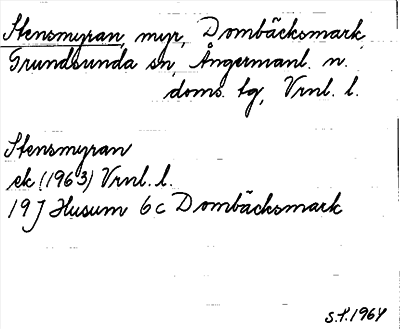 Stensmyran, myr, Dombäcksmark,
Grundsunda sn, Ångermanl. n.
doms. tg, Vrnl. l.
Stensmyran
ek (1963) Vrnl. l.
19J Husum 6c Dombäcksmark
S.P.1964